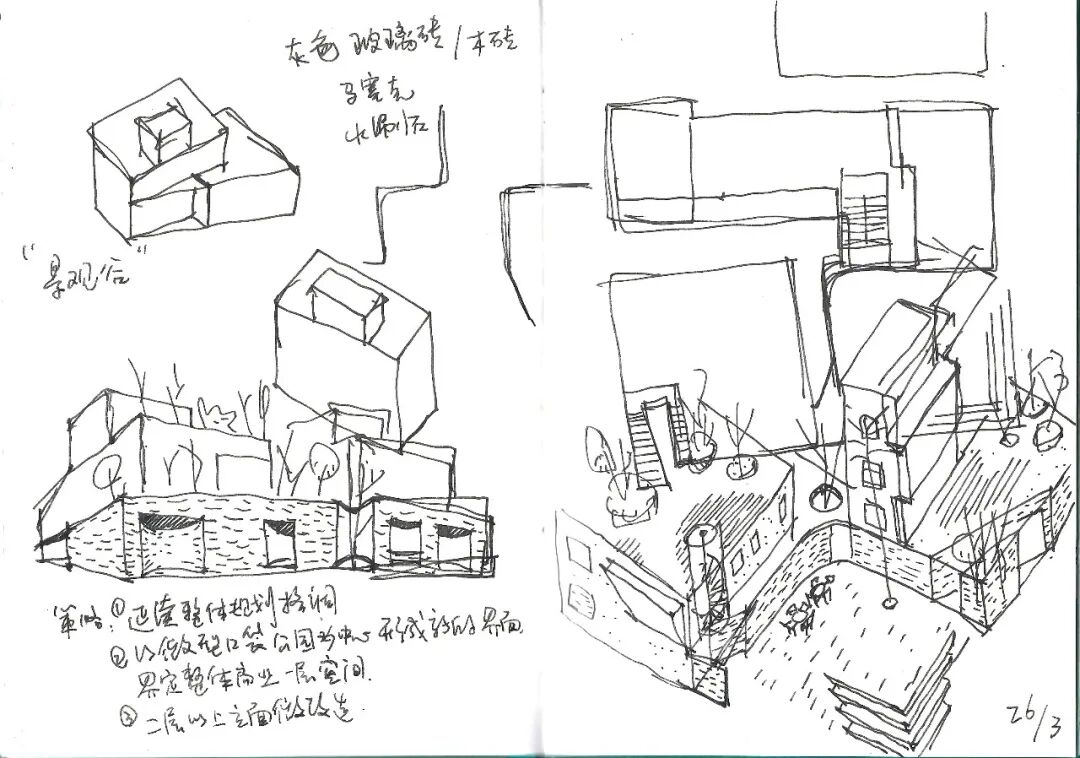 灰色 玻璃砖/木砖
马赛克
水刷石
"景观台"
策略:① 延续整体规划格调
② 以微型口袋公园为中心 形成新的界面
界定整体商业一层空间.
③ 二层以上立面微改造.
26/3